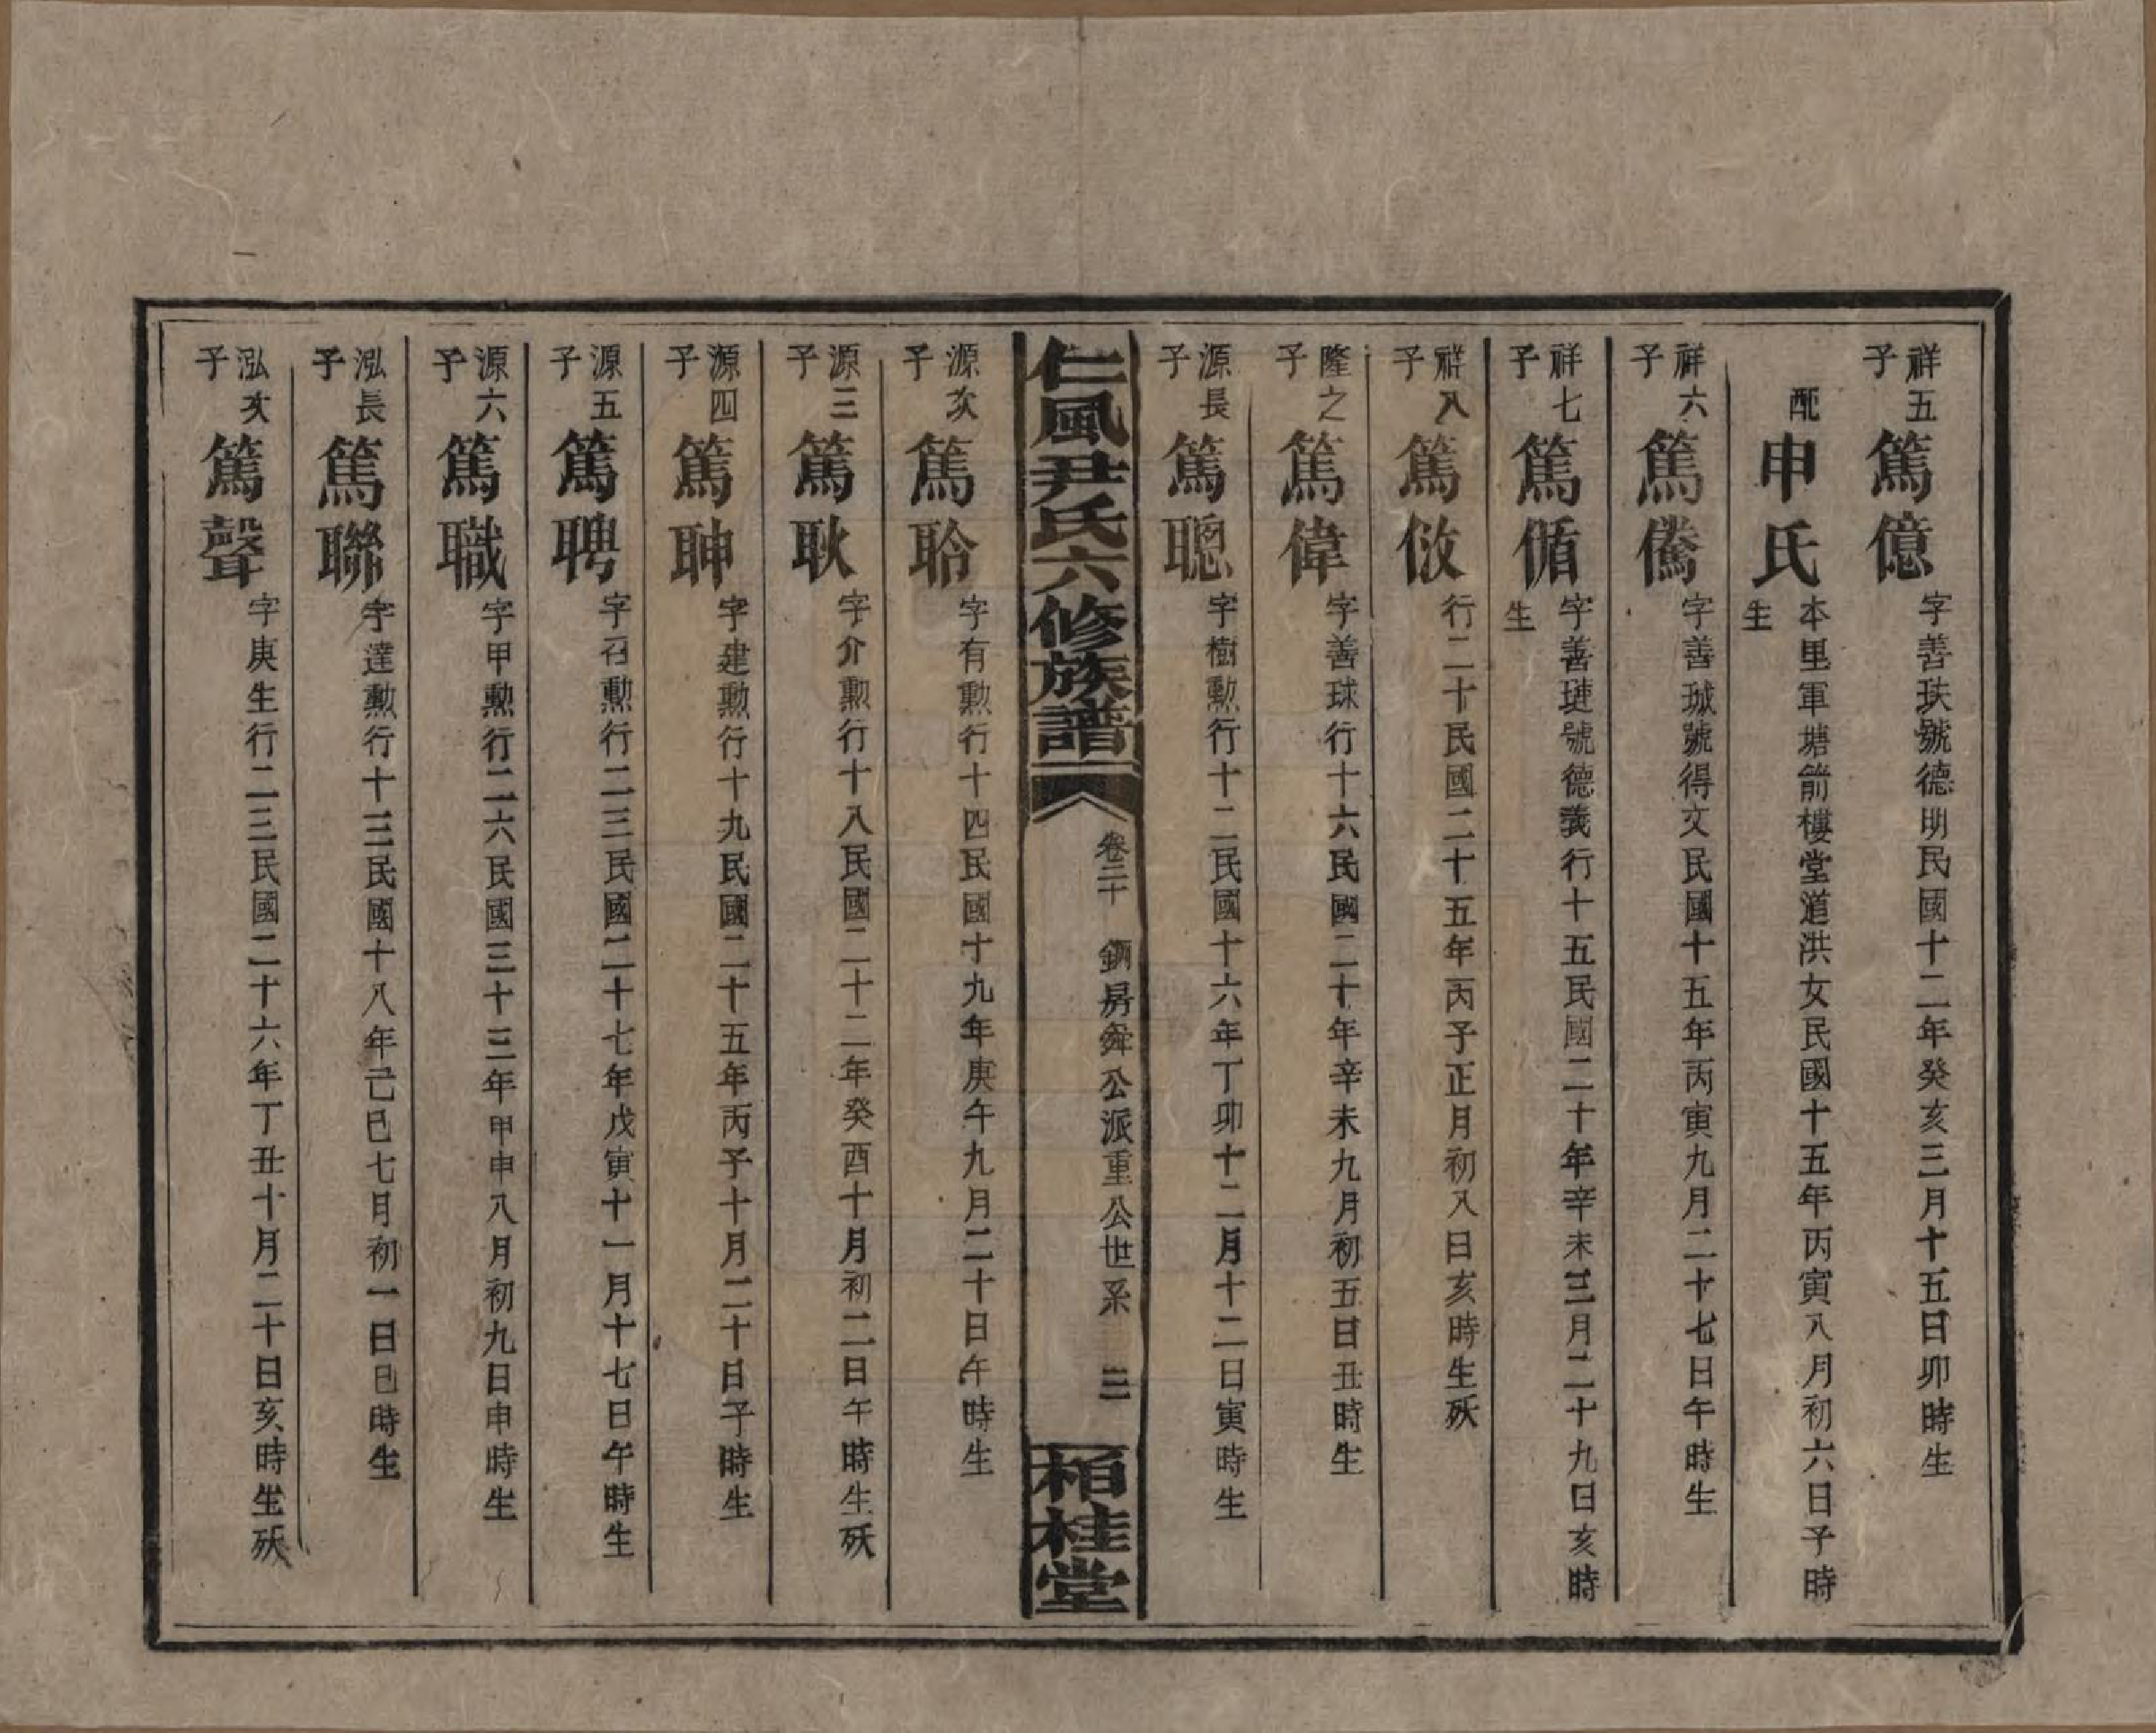 祥五子 篤億 字善玞號德明民國十二年癸亥三月十五日卯時生
配 申氏 本里軍塘箭樓堂道洪女民國十五年丙寅八月初六日子時生
祥六子 篤儁 字善珹號得文民國十五年丙寅九月二十七日午時生
祥七子 篤循 字善璉號德義行十五民國二十年辛未三月二十九日亥時生
祥八子 篤倣 行二十民國二十五年丙子正月初八日亥時生殀
隆之子 篤偉 字善球行十六民國二十年辛未九月初五日丑時生
源長子 篤聰 字樹勳行十二民國十六年丁卯十二月十二日寅時生
仁風尹氏六修族譜 卷二十 鋼房舜公派重公世系 三 栢桂堂
源次子 篤聆 字有勳行十四民國十九年庚午九月二十日午時生
源三子 篤耿 字介勳行十八民國二十二年癸酉十月初二日午時生殀
源四子 篤聃 字建勳行十九民國二十五年丙子十月二十日子時生
源五子 篤聘 字召勳行二三民國二十七年戊寅十一月十七日午時生
源六子 篤職 字甲勳行二六民國三十三年甲申八月初九日申時生
泓長子 篤聯 字達勳行十三民國十八年己巳七月初一日巳時生
泓次子 篤聲 字庚生行二三民國二十六年丁丑十月二十日亥時生殀